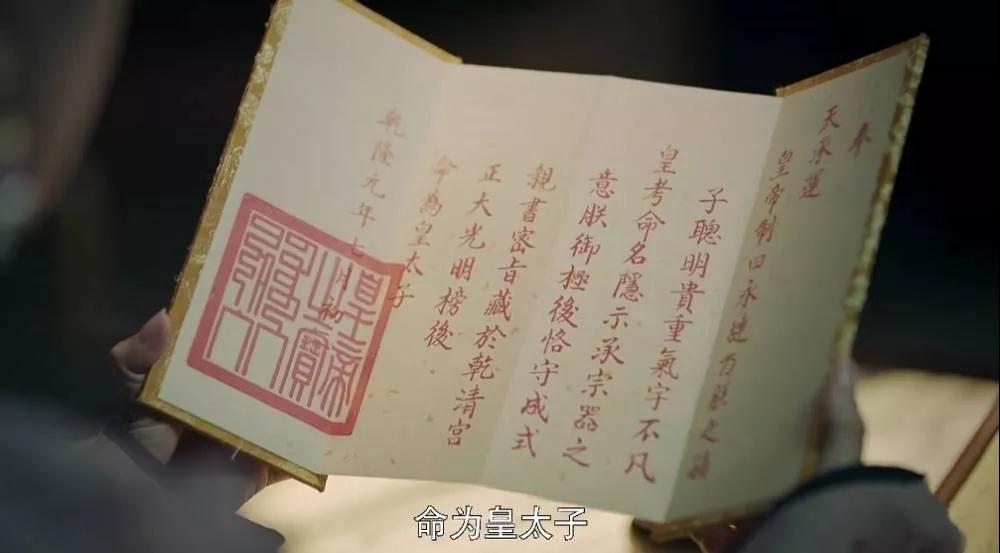 奉
天承運
皇帝制曰永璉乃朕之嫡
子聰明貴重氣宇不凡
皇考命名隱示承宗器之
意朕御極後恪守成式
親書密旨藏於乾清宮
正大光明榜後
命為皇太子
乾隆元年七月初
皇帝
之寶
命为皇太子